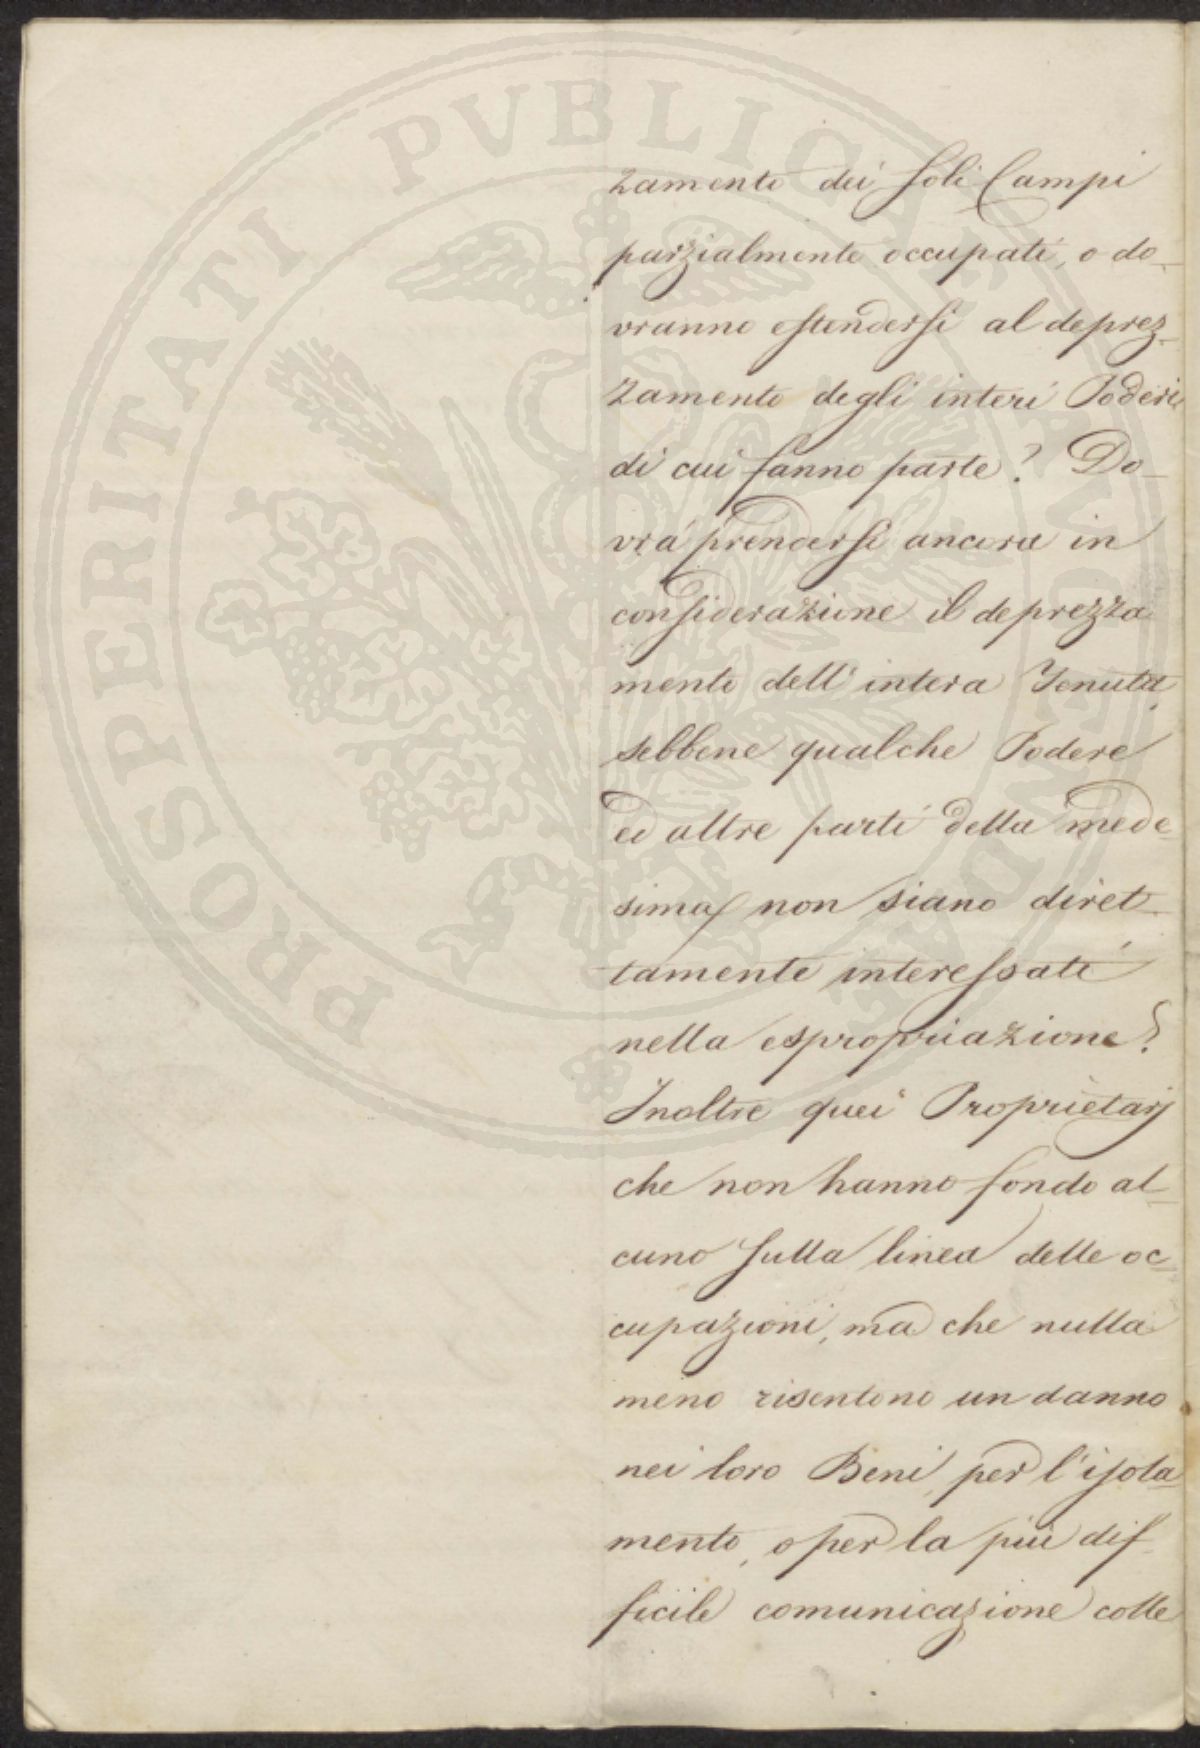 PROSPERITATI PUBLICAE AUGENDAE
zamento dei soli Campi
parzialmente occupati, o do_
vranno estendersi al deprez_
zamento degli interi Poderi
di cui fanno parte? Do_
vrà prendersi ancora in
considerazione il deprezza
mento dell'intera Tenuta,
sebbene qualche Podere
ed altre parti della mede_
sima non siano diret_
tamente interessati
nella espropriazione?
Inoltre quei Proprietarj
che non hanno fondo al_
cuno sulla linea delle oc_
cupazioni, ma che nulla
meno risentono un danno
nei loro Beni, per l'isola_
mento, o per la più dif_
ficile comunicazione colle